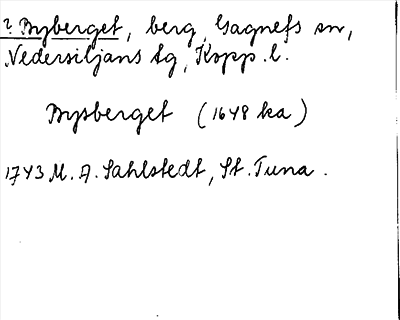 ? Byberget, berg, Gagnefs sn,
Nedersiljans tg, Kopp. l.
Bysberget (1648 ka)
1743 M. A. Sahlstedt, St. Tuna.